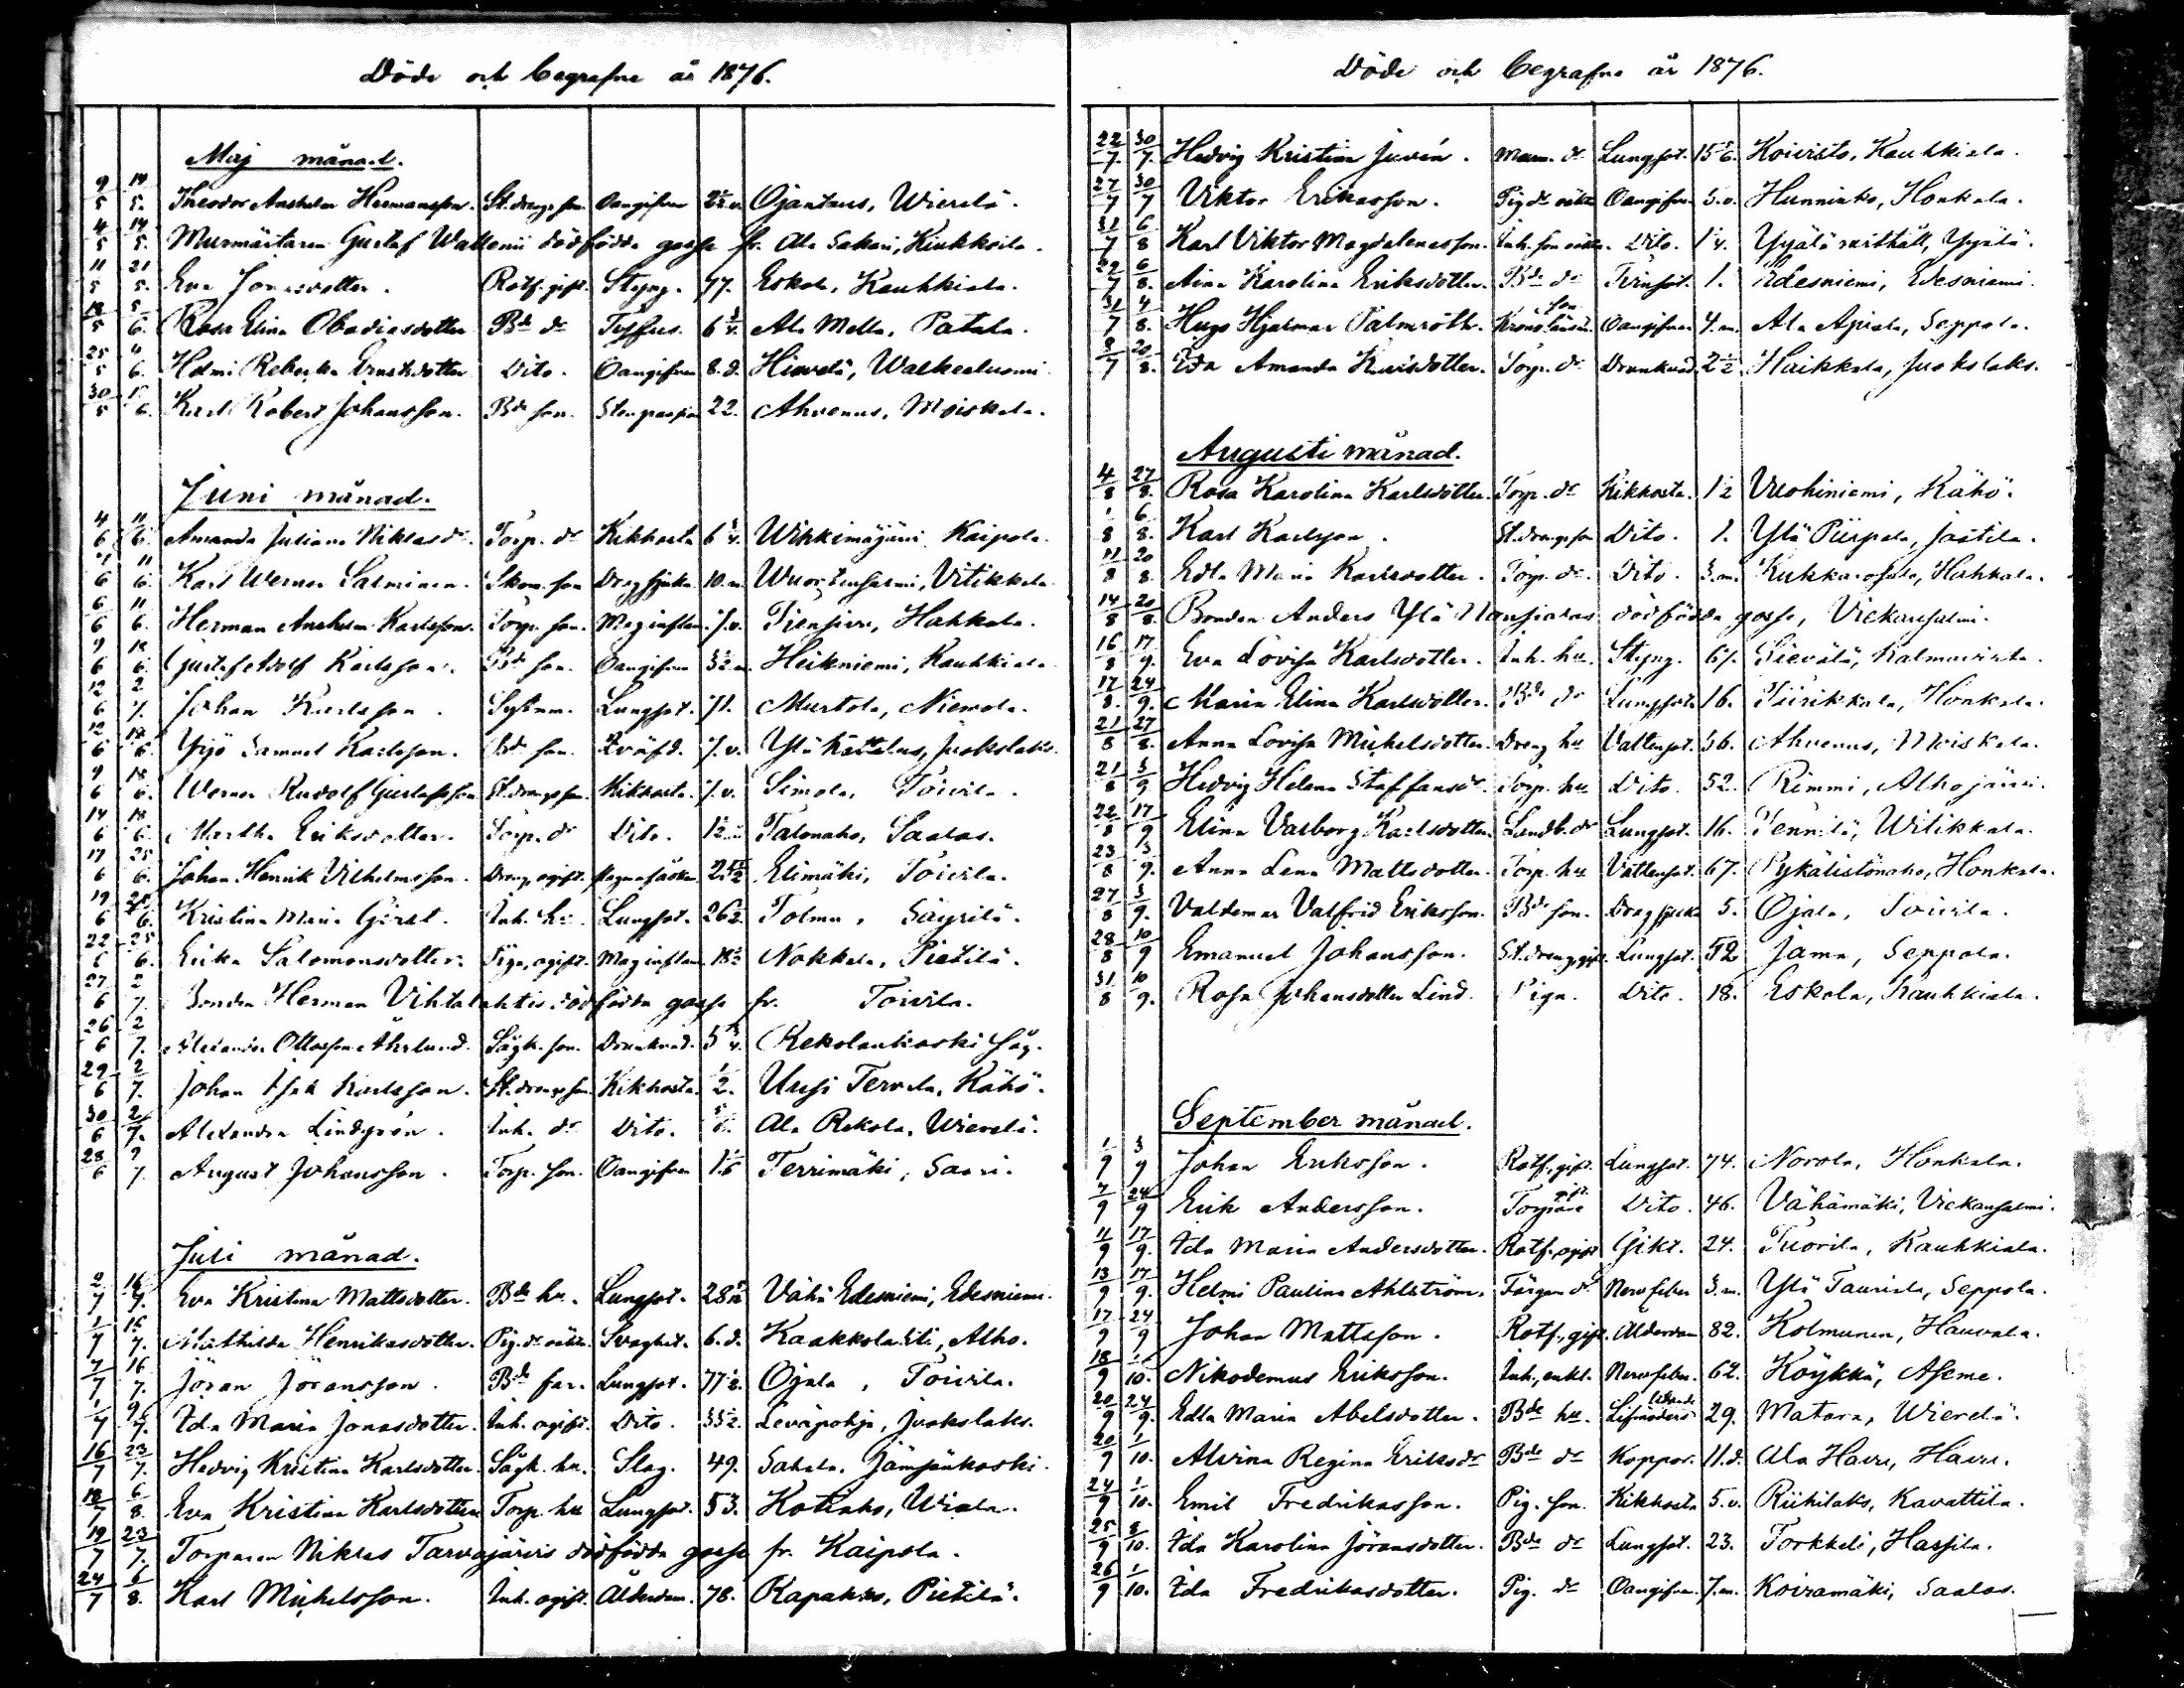 Döde och begrafne år 1876.
Maj månad.
9/5 14/5. Theodor Anshelm Hermansson. St.drengs son Oangifven 2½ v. Ojantaus, Wierelä.
4/5 14/5. Murmästaren Gustaf Wallenii dödfödda gosse fr. Ala Sakari, Kiukkoila.
11/5 21/5. Eva Jonasdotter. Rotf. gift. Styng. 77. Eskola, Kauhkiala.
18/5 5/6. Rosa Elina Obadiasdotter Bde dr Tyffus. 6 ¾. Ala Mella, Patala.
25/5 4/6. Helmi Rebecka Ernstsdotter Dito. Oangifven 8. d. Hirvelä, Walkealuomi.
30/5 /6. Karl Robert Johansson. Bde son. Stenpassion 22. Ahvenus, Moiskala.
Juni månad.
4/6 11/6. Amanda Juliana Niklasdr. Torp. dr Kikhosta 6 ¾. Wihkimäjärvi, Kaipola.
/6 11/6. Karl Werner Salminen. Skom. son Dragsjuka 10. m. Wuortensalmi, Vitikkala.
6/6 11/6. Herman Anshelm Karlsson. Torp. son. Maginflam. 7. v. Tiensivu, Hahkala.
9/6 18/6. Gustaf Adolf Karlsson. Bde son. Oangifven 3½ m. Heikniemi, Kauhkiala.
12/6 2/7. Johan Karlsson. Lungsot. 71. Murtola, Niemola.
12/6 18/6. Yrjö Samuel Karlsson. Bde son. Qväfd. 7. v. Ylä Kaitalus, Juokslaks.
9/6 18/6. Werner Rudolf Gustafsson St.drengs son. Kikhosta. 7. v. Simola, Toivila.
14/6 18/6. Martha Eriksdotter. Torp. dr Dito. 1½ Talonaho, Saalas.
17/6 25/6. Johan Henrik Vilhelmsson. Dreng, ogift. Elimäki, Toivila.
19/6 25/6. Kristina Maria Görat. Inh. hu. Lungsot. 26½. Tolmu, Säyrilä.
22/6 25/6. Erika Salomonsdotter. Piga, ogift. Maginflam. 18½ Nokkala, Pietilä.
27/6 2/7. Bonden Herman Vihtalahtis dödfödda gosse fr. Toivila.
26/6 2/7. Alexander Ottosson Åhrlund. Sågk. son. Drunknad. 5 ¾. Rekolankoski såg.
29/6 2/7. Johan Isak Karlsson. St.drengs son. Kikhosta. ½. Uusi Tervala, Kähö.
30/6 2/7. Alexandra Lindgrén. Inh. dr Dito. Ala Rekola, Wierelä.
28/6 9/7. August Johansson. Torp. son. Oangifven Terrimäki, Saari.
Juli månad.
2/7 16/7. Eva Kristina Mattsdotter. Bde hu. Lungsot. 28 Vähä Edesniemi, Edesniemi.
1/7 16/7. Mathilda Henriksdotter. Pig. dr oäkta. Svaghet. 6. d. Kaakkolahti, Alho.
7/7 16/7. Jöran Jöransson. Bde far. Lungsot. 77½. Ojala, Toivila.
1/7 9/7. Ida Maria Jonasdotter. Inh. ogift. Dito. 33½. Leväpohja, Juokslaks.
16/7 23/7. Hedvig Kristina Karlsdotter. Sågk. hu. Slag. 49. Sahala, Jämsänkoski.
18/7 6/8. Eva Kristina Karlsdotter Torp. hu Lungsot. 53. Kotiaho, Wiala.
19/7 23/7. Torparen Niklas Tarvajärvis dödfödda gosse fr. Kaipola.
24/7 6/8. Karl Michelsson. Inh. ogift. Ålderdom. 78. Rapahus, Pietilä.
Döde och begrafne år 1876.
22/7. 30/7. Hedvig Kristina Juvén. Mam. dr Lungsot. 15 5/6. Koivisto, Kauhkiala.
27/7 30/7 Viktor Eriksson. Pigdr oäkta Oangifven 3. v. Hunninko, Honkala.
31/7 6/8 Karl Viktor Magdalenasson. Inh. son oäkta. Dito. 1¼. Yijälä, Yijälä.
29/7 6/8. Aina Karolina Eriksdotter. Bde dr Tvinsot. 1. Edesniemi, Edesniemi.
31/7 4/8. Hugo Hjalmar Palmroth. Kronolänsm. son Oangifven 4. m. Ala Apiala, Seppola.
8/7 20/8. Ida Amanda Davidsdotter. Torp. dr Drunknad 2½. Haikkala, Juokslaks.
Augusti månad.
4/8 27/8. Rosa Karolina Karlsdotter. Torp. dr Kikhosta. 1½ Vuohiniemi, Kähö.
1/8 6/8. Karl Karlsson. St.drengs son Dito. 1. Ylä Piispala, Jaatila.
11/8 20/8. Edla Maria Karlsdotter. Torp. dr. Dito. 3. m. Kukkarosalo, Hahkala.
14/8 20/8. Bonden Anders Ylä Nansialas dödfödda gosse, Viekansalmi.
16/8 17/9. Eva Lovisa Karlsdotter. Inh. hu. Styng. 67. Sievälä, Kalmavirta.
17/8. 24/9. Maria Elina Karlsdotter. Bde dr Lungsot 16. Piirikkala, Honkala.
21/8 27/8. Anna Lovisa Michelsdotter. Dreng hu Vattensot. 36. Ahvenus, Moiskala.
21/8 3/9. Hedvig Helena Staffansdr Torp. hu Dito. 52. Rimmi, Alhojärvi.
22/8 17/9 Elina Valborg Karlsdotter Landb. dr Lungsot. 16. Pennilä, Witikkala.
23/8 3/9. Anna Lena Mattsdotter. Torp. hu Vattensot. 67. Pykälistönaho, Honkala.
27/8 3/9. Valdemar Valfrid Eriksson. Bde son. Dragsjuka 5. Ojala, Toivila.
28/8 10/9 Emanuel Johansson. St.dreng gift. Lungsot. 52 Jama, Seppola.
31/8 10/9. Rosa Johansdotter Lind. Piga. Dito. 18. Eskola, Kauhkiala.
September månad.
1/9 3/9 Johan Eriksson. Rotf. gift. Lungsot. 74. Norola, Honkala.
7/9 24/9 Erik Andersson. Torpare gift. Dito. 46. Vähämäki, Viekansalmi.
11/9 17/9. Ida Maria Andersdotter. Rotf. ogift Gikt. 24. Tuorila, Kauhkiala.
13/9 17/9. Helmi Paulina Ahlström. Färgare dr Nervfeber 3. m. Ylä Taurila, Seppola.
17/9 24/9 Johan Mattsson. Rotf. gift. Ålderdom 82. Kolmunen, Hauvala.
18/9 1/10. Nikodemus Eriksson. Inh., enkl. Nervfeber. 62. Köykkä, Aseme.
20/9 24/9. Edla Maria Abelsdotter. Bde hu. Lifmoders lidande 29. Matara, Wierelä.
20/9 1/10. Alvina Regina Eriksdr Bde dr Koppor. 11. d. Ala Havu, Havu.
24/9 1/10. Emil Fredriksson. Pig. son. Kikhosta 5. v. Riihilaks, Kavattila.
25/9 8/10. Ida Karolina Jöransdotter. Bde dr Lungsot. 23. Torkkeli, Hassila.
26/9 1/10. Ida Fredriksdotter. Pig. dr Oangifven. 7. m. Koiramäki, Saalas.